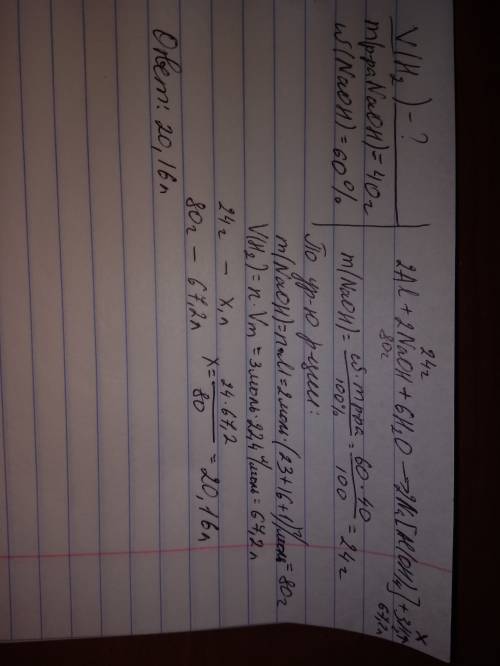 V(H₂) - ?
m(р-ра NaOH) = 40г
ω(NaOH) = 60%
24г x
2Al + 2NaOH + 6H₂O → 2Na[Al(OH)₄] + 3H₂↑
80г 67,2л
m(NaOH) = ω · mр-ра / 100% = 60 · 40 / 100 = 24г
По ур-ю р-ции:
m(NaOH) = n·M = 2моль · (23+16+1) г/моль = 80г
V(H₂) = n · Vm = 3моль · 22,4 л/моль = 67,2л
24г — x, л
80г — 67,2л x = 24 · 67,2 / 80 = 20,16л
Ответ: 20,16л